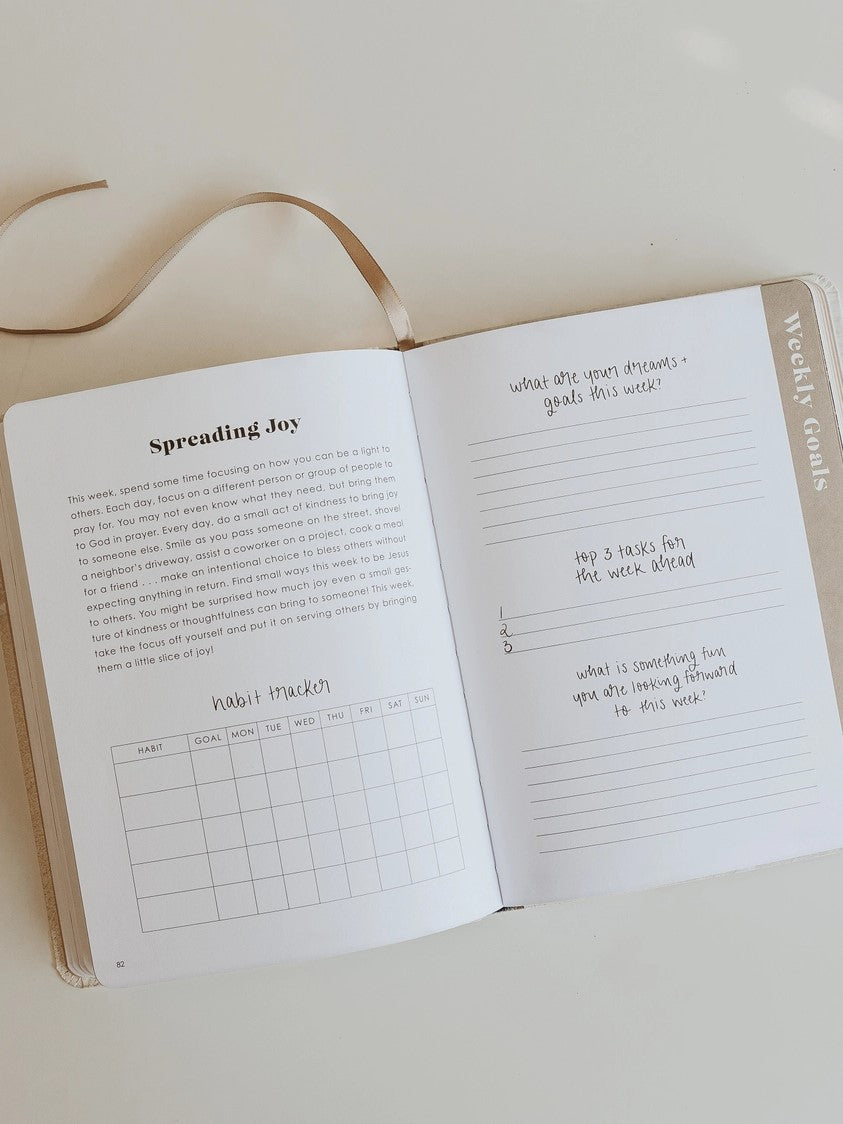 Spreading Joy
This week, spend some time focusing on how you can be a light to
others. Each day, focus on a different person or group of people to
pray for. You may not even know what they need, but bring them
to God in prayer. Every day, do a small act of kindness to bring joy
to someone else. Smile as you pass someone on the street, shovel
a neighbor's driveway, assist a coworker on a project, cook a meal
for a friend . . . make an intentional choice to bless others without
expecting anything in return. Find small ways this week to be Jesus
to others. You might be surprised how much joy even a small ges-
ture of kindness or thoughtfulness can bring to someone! This week,
take the focus off yourself and put it on serving others by bringing
them a little slice of joy!
habit tracker
HABIT GOAL MON TUE WED THU FRI SAT SUN
82
what are your dreams +
goals this week?
top 3 tasks for
the week ahead
1
2
3
what is something fun
you are looking forward
to this week?
Weekly Goals